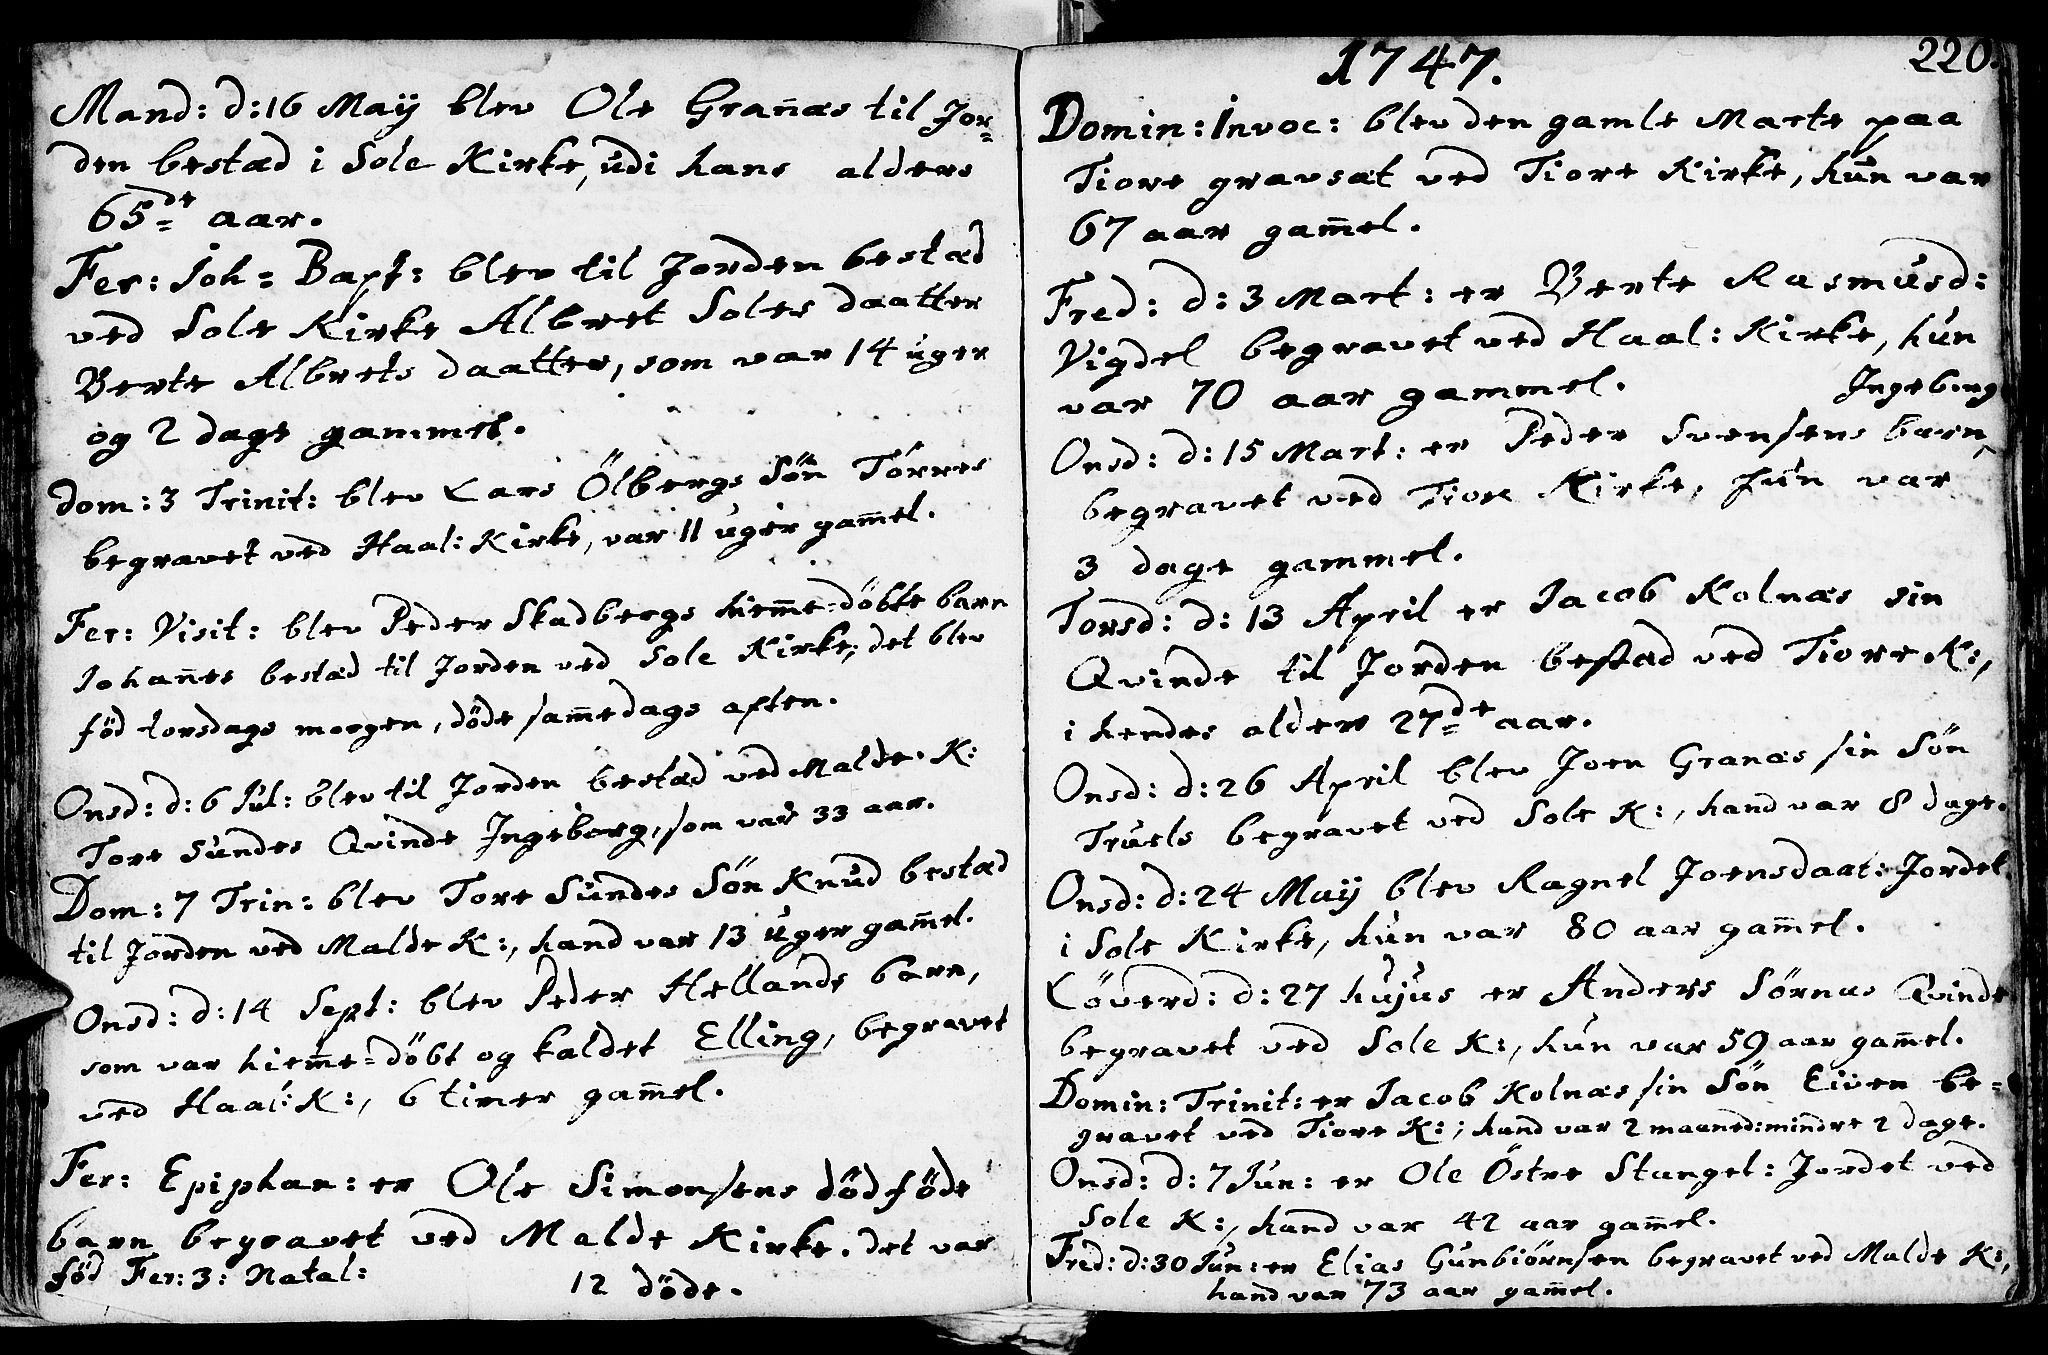 Mand: d: 16 Maÿ blev Ole Grañæs til Jor=
den bestæd i Sole Kirke, udi hans alders
65de aar.
Fer: Joh= Bapt: blev til Jorden bestæd
ved Sole Kirke Albret Soles daatter
Berte Albrets daatter, som var 14 uger
og 2 dage gammel.
Dom: 3 Trinit: blev Lars Ölbergs Sön Törres
begravet ved Haal: Kirke, var 11 uger gam̄el.
Fer: Visit: blev Peder Skadbergs hiem̄e=döbte barn
Johañes bestæd til Jorden ved Sole Kirke, det blev
föd torsdags morgen, döde sam̄edags aften.
Onsd: d: 6 Jul: blev til Jorden bestæd ved Malde K:
Tore Sundes Qvinde Ingeborg, som var 33 aar.
Dom: 7 Trin: blev Tore Sundes Sön Knud bestæd
til Jorden ved Malde K:, hand var 13 uger gam̄el.
Onsd: d: 14 Sept: blev Peder Hellands barn,
som var hiem̄e=döbt og kaldet Elling, begravet
ved Haal: K:, 6 timer gam̄el.
Fer: Epiphan: er Ole Simonsens dödföde
barn begravet ved Malde Kirke. det var
föd Fer: 3: Natal:
12 döde.
1747.
220.
Domin: Invoc: blev den gamle Marte paa
Tiore gravsat ved Tiore Kirke, hun var
67 aar gam̄el.
Fred: d: 3 Mart: er Berte Rasmusd:
Vigdel begravet ved Haal: Kirke, hun
var 70 aar gammel.
Ingeborg
Onsd: d: 15 Mart: er Peder Svensens barn^
begravet ved Tiore Kirke, hun var
3 dage gammel.
Torsd: d: 13 April er Jacob Kolnæs sin
Qvinde til Jorden bestæd ved Tiore K:,
i hendes alder 27de aar.
Onsd: d: 26 April blev Joen Granæs sin Sön
Truels begravet ved Sole K:, hand var 8 dage.
Onsd: d: 24 Maÿ blev Ragnel Joensdaat: Jordet
i Sole Kirke, hun var 80 aar gam̄el.
Löverd: d: 27 hujus er Anders Sörnæs Qvinde
begravet ved Sole K:, hun var 59 aar gam̄el.
Domin: Trinit: er Jacob Kolnæs sin Sön Eiven be=
gravet ved Tiore K:; hand var 2 maaned: mindre 2 dage.
Onsd: d: 7 Jun: er Ole Östre Stangel: Jordet ved
Sole K:, hand var 42 aar gam̄el.
Fred: d: 30 Jun: er Elias Gunbiörnsen begravet ved Malde K:,
hand var 73 aar gam̄el.